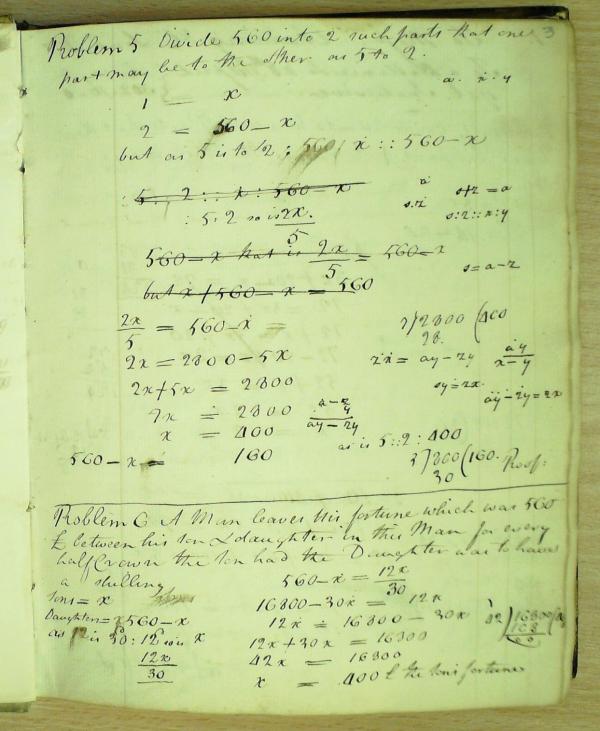 Problem 5 Divide 560 into 2 such parts that one 3
part may be to the other as 5 to 2.
1 — x
2 = 560 — x
but as 5 is to 2 : x :: 560 — x
5 : 2 :: x : 560 — x
: 5 : 2 so is 2x/5
s+z = a
s:z::x:y
560 — x that is 2x/5 = 560 — x
s = a — z
but x + 560 — x = 560
2x/5 = 560 — x =
2x = 2800 — 5x
2x + 5x = 2800
7x = 2800
x = 400
560 — x = 160
2800 (400
28
zx = ay — zy
ay/x—y
sy = zx
ay — zy = zx
a—z
y
ay — zy
as is 5 :: 2 : 400
800 (160.
30
Proof:
Problem 6 A Man leaves his fortune which was 560
£ between his son & daughter in this Man for every
half Crown the son had the Daughter was to have
a shilling
Sons = x
Daughters = 560 — x
as 30 : 12 so is x
12x/30
560 — x = 12x/30
16800 — 30x = 12x
12x = 16800 — 30x
12x + 30x = 16800
42x = 16800
x = 400 £ the sons fortune
42) 16800
168